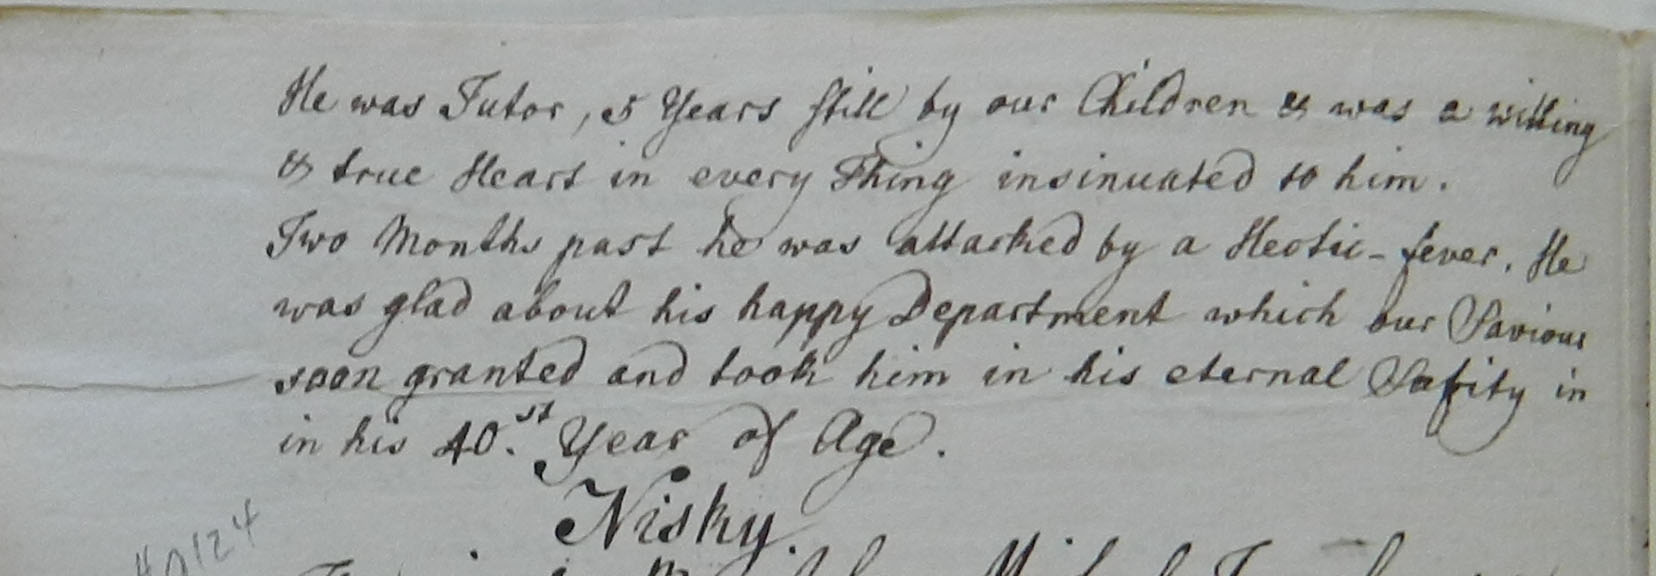 He was Tutor, 5 Years still by our Children & was a willing
& true Heart in every Thing insinuated to him.
Two Months past he was attacked by a Hectic-fever. He
was glad about his happy Department which our Saviour
soon granted and took him in his eternal Safity in
in his 40.st Year of Age.
Nisky.
40124